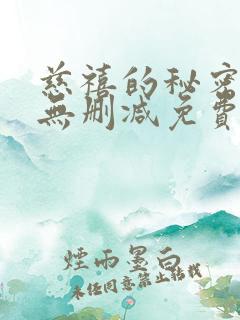 慈禧的秘密
無删减免費
煙雨墨白
未经同意禁止转载